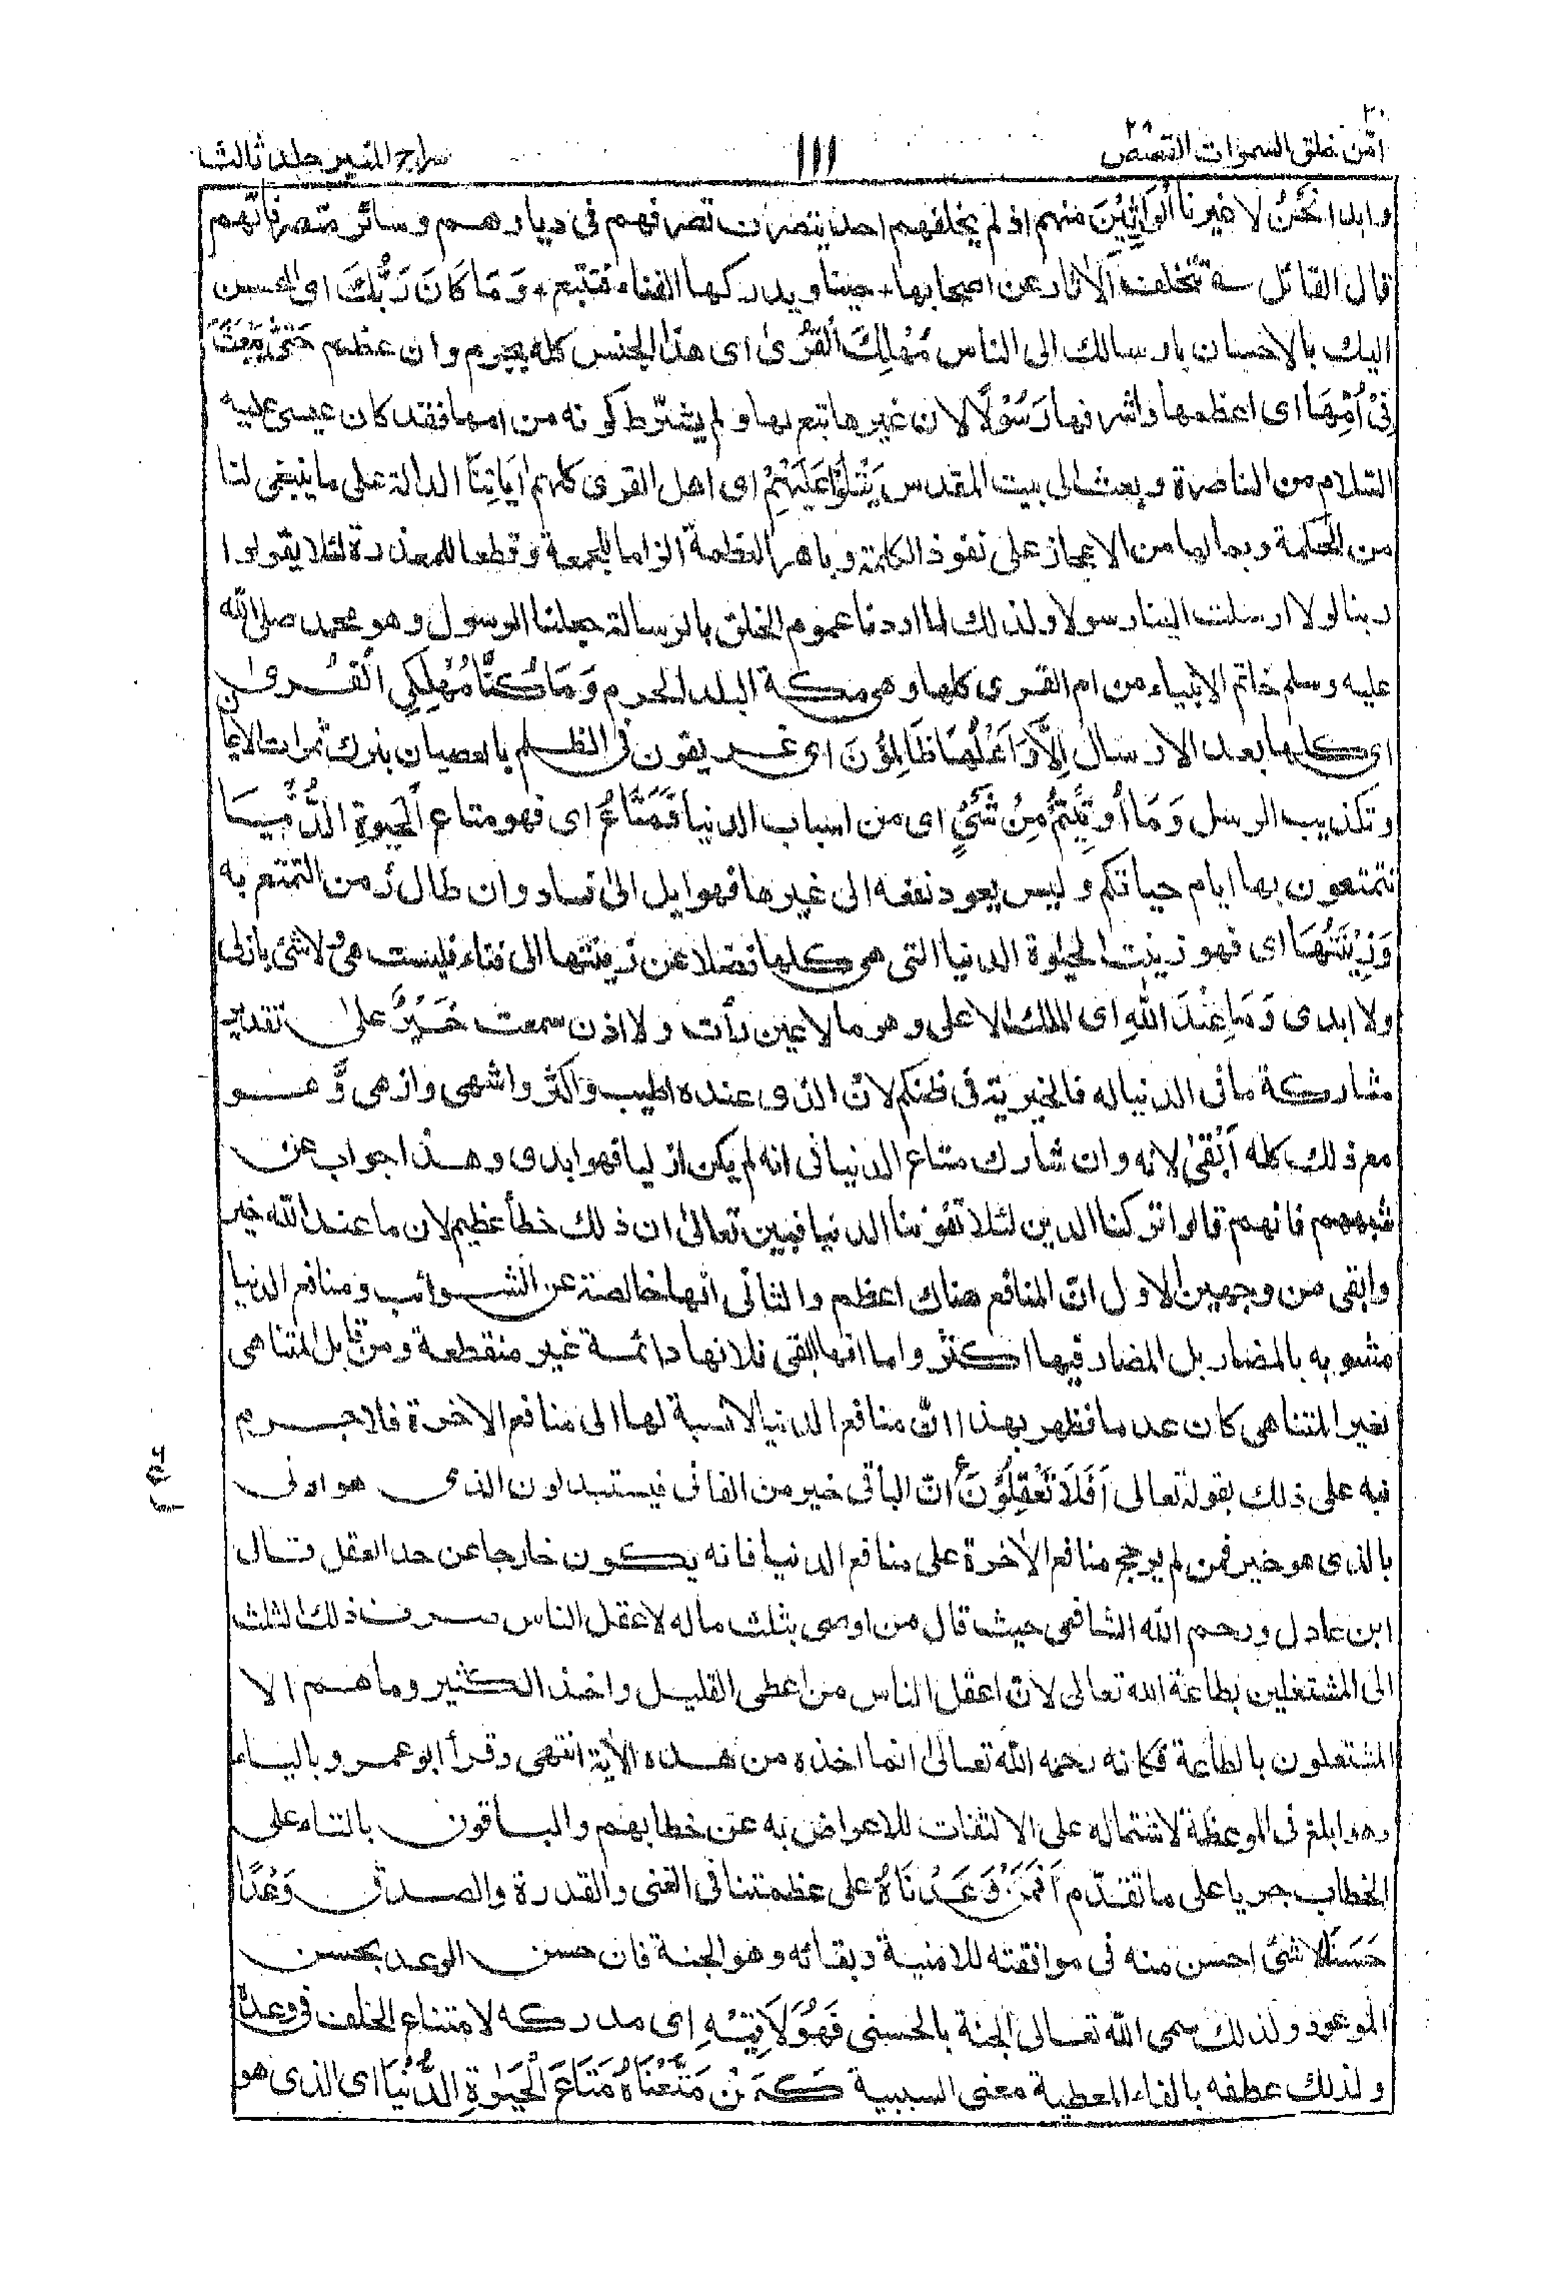 ٢٠
امّن خلق السموات القصص ٢٨
١١١
سراج المنير جلد ثالث
وابدا نَحْنُ لا غيرنا الْوَارِثِيْنَ منهم اذ لم يخلفهم احد يتصرف تصرفهم فى ديارهم وسائر متصرفاتهم
قال القائل سه تتخلف الآثار عن اصحابها ٭ حينا ويدركها الفناء فتتبع ٭ وَمَا كَانَ رَبُّكَ اى المحسن
اليك بالاحسان بارسالك الى الناس مُهْلِكَ الْقُرٰى اى هذا الجنس كله بجرم وان عظم حَتّٰى يَبْعَثَ
فِىْ اُمِّهَا اى اعظمها واشرفها رَسُوْلًا لان غيرها تبع لها ولم يشترط كونه من امها فقد كان عيسى عليه
السّلام من الناصرة وبعث الى بيت المقدس يَتْلُوْا عَلَيْهِمْ اى اهل القرى كلهم اٰيَاتِنَا الدالة على ما ينبغى لنا
من الحكمة وبما لها من الاعجاز على نفوذ الكلمة وباهر العظمة الزاما للحجة وقطعا للمعذرة لئلا يقولوا
ربنا لولا ارسلت الينا رسولا ولذلك لما اردنا عموم الخلق بالرسالة جعلنا الرسول وهو محمد صلى الله
عليه وسلم خاتم الانبياء من ام القرى كلها وهى مكة البلد الحرم وَمَا كُنَّا مُهْلِكِى الْقُرٰى
اى كلها بعد الارسال اِلَّا وَاَهْلُهَا ظَالِمُوْنَ اى غريقون فى الظلم بالعصيان بترك ثمرات الايمان
وتكذيب الرسل وَمَا اُوْتِيْتُمْ مِنْ شَىْءٍ اى من اسباب الدنيا فَمَتَاعُ اى فهو متاع الْحَيٰوةِ الدُّنْيَا
تتمتعون بها ايام حياتكم وليس يعود نفعه الى غيرها فهو ايل الى فساد وان طال زمن التمتع به
وَزِيْنَتُهَا اى فهو زينت الحيٰوة الدنيا التى هى كلها فضلا عن زينتها الى فناء فليست هى ولا شئ بازلى
ولا ابدى وَمَا عِنْدَ اللهِ اى الملك الاعلى وهو ما لا عين رأت ولا اذن سمعت خَيْرٌ على تقدير
مشاركة ما فى الدنيا له فالخيرية فى ظنكم لانّ الذى عنده اطيب واكثر واشهى وازهى وَّ هو
مع ذلك كله اَبْقٰى لانه وان شارك متاع الدنيا فى انه لم يكن ازليا فهو ابدى وهذا جواب عن
شبههم فانهم قالوا تركنا الدين لئلا تفوتنا الدنيا فبين تعالى ان ذلك خطأ عظيم لان ما عند الله خير
وابقى من وجهين الاول انّ المنافع هناك اعظم والثانى انها خالصة عن الشوائب ومنافع الدنيا
مشوبه بالمضار بل المضار فيها اكثر واما انها ابقى فلانها دائمة غير منقطعة ومن قابل المتناهى
بغير المتناهى كان عدما فظهر بهذا انّ منافع الدنيا لا نسبة لها الى منافع الاخرة فلا جرم
نبه على ذلك بقوله تعالى اَفَلَا تَعْقِلُوْنَ انّ الباقى خير من الفانى فيستبدلون الذى هو ادنى
بالذى هو خير فمن لم يرجح منافع الاٰخرة على منافع الدنيا فانه يكون خارجا عن حد العقل قال
ابن عادل ورحم الله الشافعى حيث قال من اوصى بثلث ماله لا عقل الناس صرف ذلك الثلث
الى المشتغلين بطاعة الله تعالى لانّ اعقل الناس من اعطى القليل واخذ الكثير وما هم الا
المشتغلون بالطاعة فكانه رحمه الله تعالىٰ انما اخذه من هذه الاٰية انتهى وقرأ ابو عمرو بالياء
وهو ابلغ فى الموعظة لاشتماله على الالتفات للاعراض به عن خطابهم والباقون بالتاء على
الخطاب جريا على ما تقدّم اَفَمَنْ وَعَدْنَاهُ على عظمتنا فى الغنى والقدرة والصدق وَعْدًا
حَسَنًا لا شئ احسن منه فى موافقته للامنية وبقائه وهو الجنة فان حسن الوعد بحسن
الموعود ولذلك سمى الله تعالى الجنة بالحسنى فَهُوَ لَاقِيْهِ اى مدركه لامتناع الخلف فى وعدنا
ولذلك عطفه بالفاء المعطية معنى السببية كَمَنْ مَتَّعْنَاهُ مَتَاعَ الْحَيٰوةِ الدُّنْيَا اى الذى هو